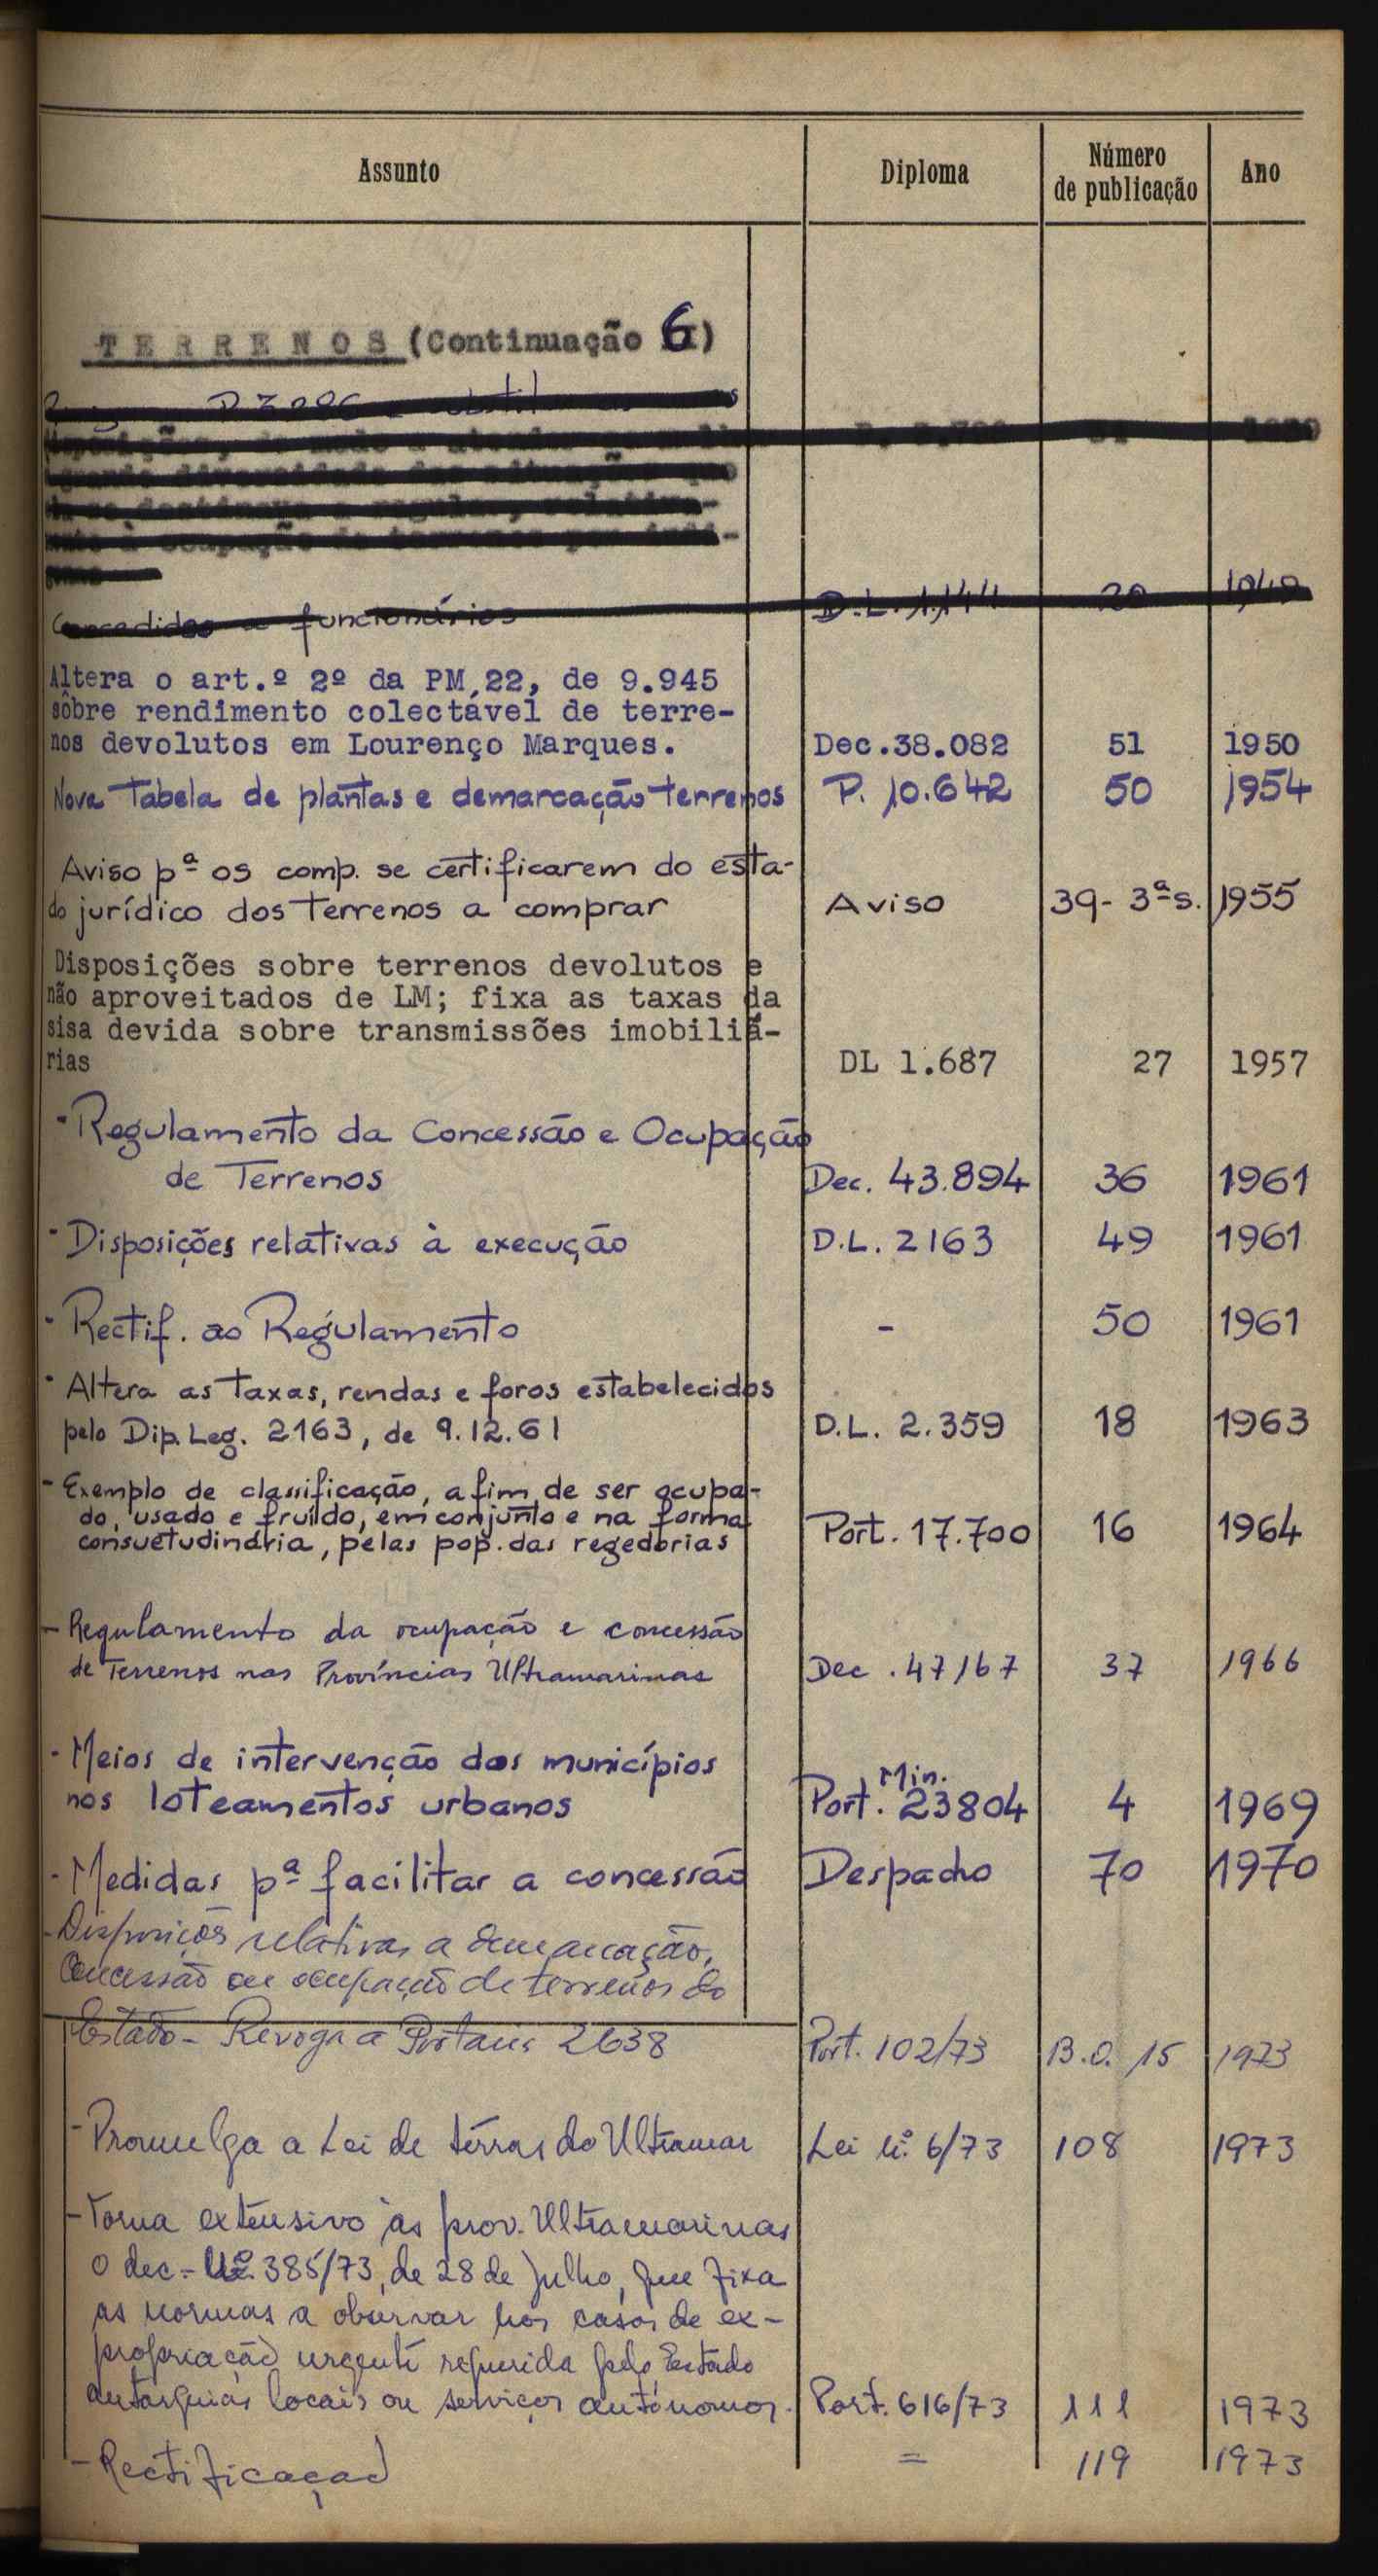 Assunto Diploma Número de publicação Ano
TERRENOS (Continuação 6)
funcionários D.L. 1.144 20 1949
Altera o art.º 2º da PM,22, de 9.945
sôbre rendimento colectável de terre-
nos devolutos em Lourenço Marques. Dec.38.082 51 1950
Nova Tabela de plantas e demarcação terrenos P. 10.642 50 1954
Aviso pª os comp. se certificarem do esta-
do jurídico dos terrenos a comprar Aviso 39- 3ª s. 1955
Disposições sobre terrenos devolutos e
não aproveitados de LM; fixa as taxas da
sisa devida sobre transmissões imobiliá-
rias DL 1.687 27 1957
- Regulamento da Concessão e Ocupação
de Terrenos Dec. 43.894 36 1961
- Disposições relativas à execução D.L. 2163 49 1961
- Rectif. ao Regulamento - 50 1961
- Altera as taxas, rendas e foros estabelecidos
pelo Dip. Leg. 2163, de 9.12.61 D.L. 2.359 18 1963
- Exemplo de classificação, a fim de ser ocupa-
do, usado e fruído, em conjunto e na forma
consuetudinária, pelas pop. das regedorias Port. 17.700 16 1964
- Regulamento da ocupação e concessão
de Terrenos nas Províncias Ultramarinas Dec. 47167 37 1966
- Meios de intervenção dos municípios
nos loteamentos urbanos Port. Min. 23804 4 1969
- Medidas pª facilitar a concessão Despacho 70 1970
- Disposições relativas a demarcação,
concessão ou ocupação de terrenos do
Estado - Revoga a Portaria 2638 Port. 102/73 B.O. 15 1973
- Promulga a Lei de térras do Ultramar Lei nº 6/73 108 1973
- Torna extensivo às prov. Ultramarinas
o dec.- nº 385/73, de 28 de Julho, que fixa
as normas a observar nos casos de ex-
propriação urgente requerida pelo Estado
autarquias locais ou serviços autónomos. Port. 616/73 111 1973
- Rectificação = 119 1973